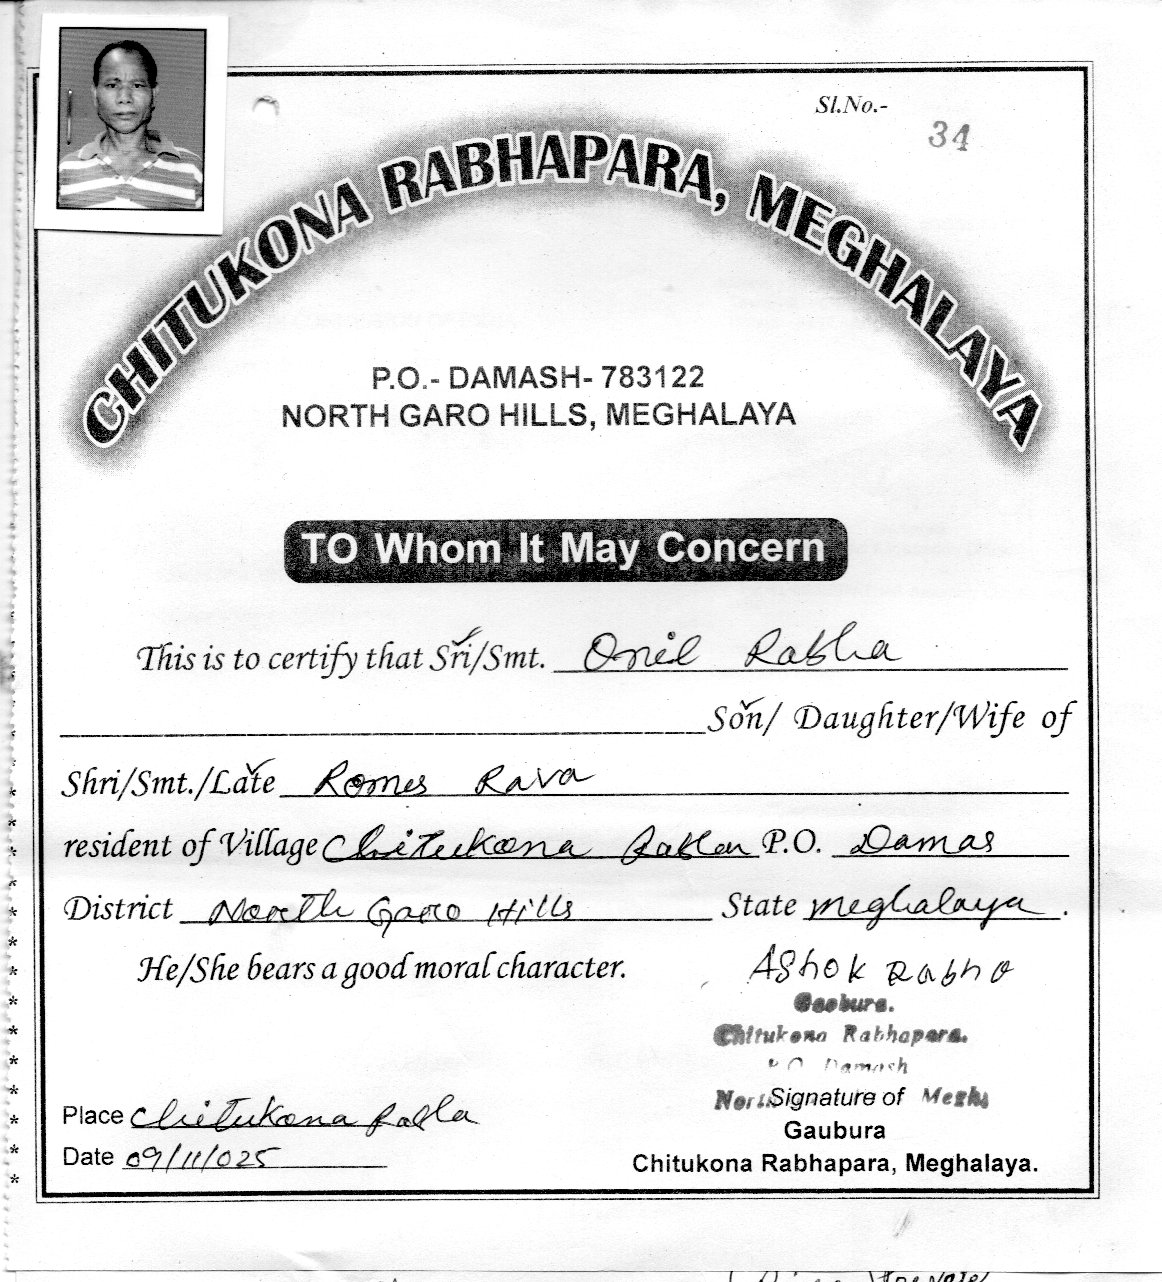 Sl.No.-
34
CHITUKONA RABHAPARA, MEGHALAYA
P.O.- DAMASH- 783122
NORTH GARO HILLS, MEGHALAYA
TO Whom It May Concern
This is to certify that Sri/Smt. Onil Rabha
Son/ Daughter/Wife of
Shri/Smt./Late Romes Rava
resident of Village Chitukona P.O. Damas
District North Garo Hills State Meghalaya.
He/She bears a good moral character.
AShok Rabha
Gaobura.
Chitukona Rabhapara.
P.O. Damash
Signature of
Gaubura
Chitukona Rabhapara, Meghalaya.
Place Chitukona Rabha
Date 09/11/025